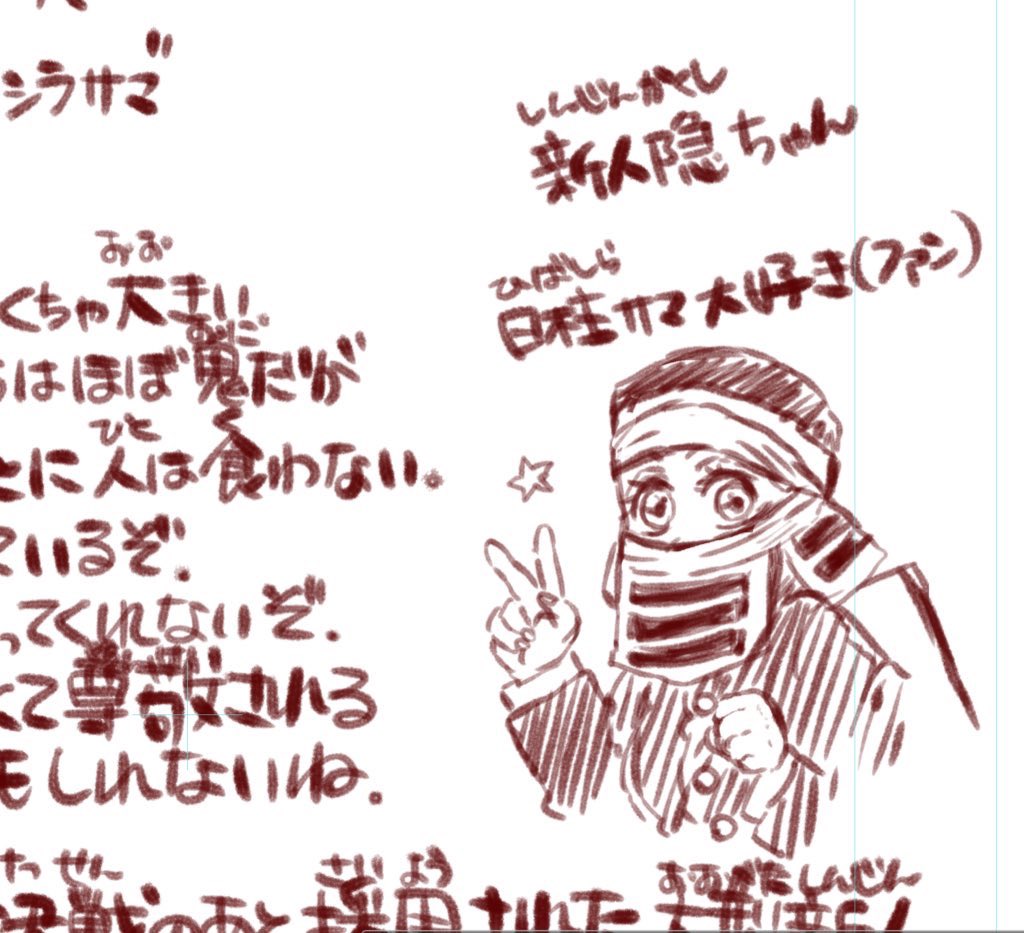 シラサマ゛
しんじんかくし
新人隠ちゃん
ひばしら
日柱サマ大好き(ファン)
おお
くちゃ大きい
おに
はほぼ鬼だが゛
ひと く
とに人は食わない。
ているぞ.
ってくれないぞ.
くて尊敬される
もしれないね.
たっせん さいよう おおがたしんじん
決戦のあと採用された大型新人!